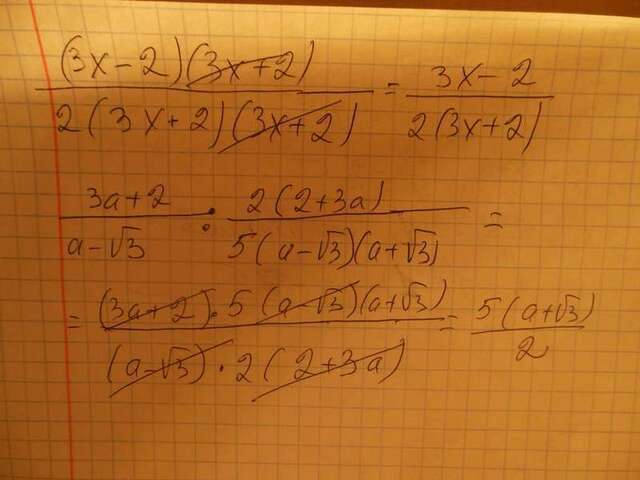 (3x-2)(3x+2) / 2(3x+2)(3x+2) = 3x-2 / 2(3x+2)
3a+2 / a-√3 : 2(2+3a) / 5(a-√3)(a+√3) =
= (3a+2)·5(a-√3)(a+√3) / (a-√3)·2(2+3a) = 5(a+√3) / 2